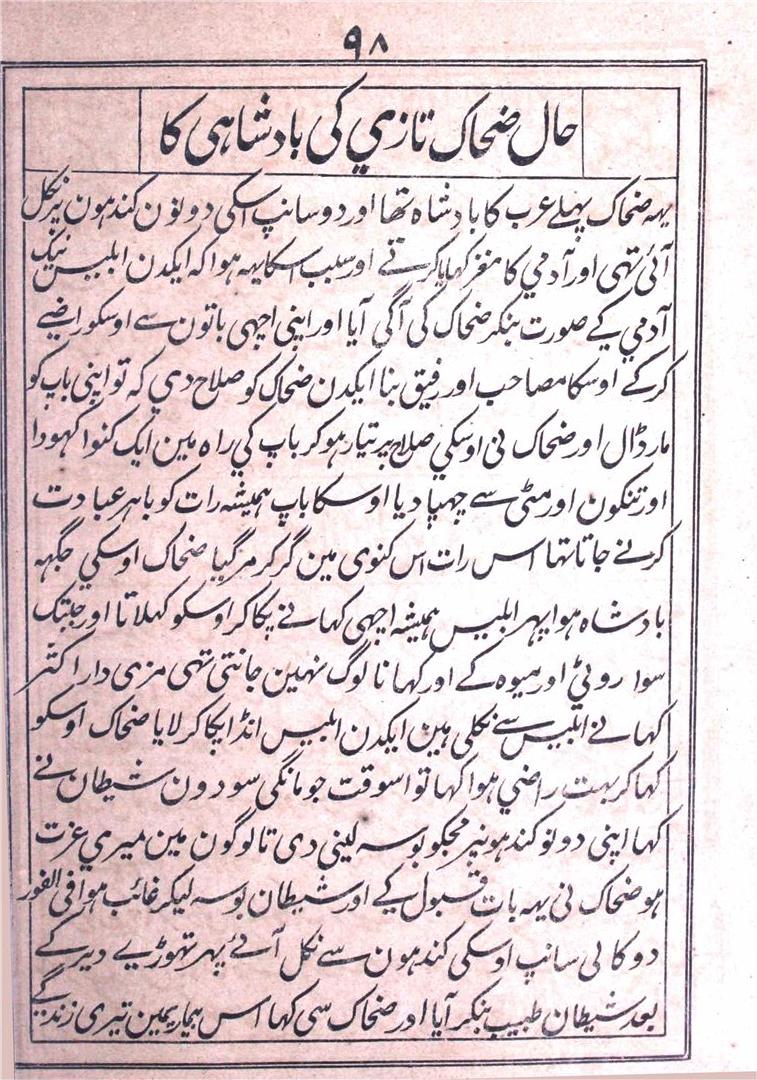 ۹۸
حال ضحاک تازي کی بادشاہی کا
یہہ ضحاک پہلے عرب کا بادشاہ تھا اور دو سانپ اسکی دونون کندہون پر نکل
آئی تہی اور آدمي کا مغز کہایا کرتے اور سبب اسکا یہہ ہوا کہ ایکدن ابلیس نیک
آدمي کے صورت بنکر ضحاک کی آگی آیا اور اپنی اچہی باتون سے اوسکو راضے
کرکے اوسکا مصاحب اور رفیق بنا ایکدن ضحاک کو صلاح دي کہ تو اپنی باپ کو
مار ڈال اور ضحاک نی اوسکي صلاح پر تیار ہوکر باپ کي راہ مین ایک کنوا کہودا
اور تنکون اور مٹی سے چہپا دیا اوسکا باپ ہمیشہ رات کو باہر عبادت
کرنے جاتا تہا اس رات اس کنوی مین گر کر مرگیا ضحاک اوسکي جگہہ
بادشاہ ہوا پہر ابلیس ہمیشہ اچہی کہانے پکا کر اوسکو کہلاتا اور جبتک
سوا روٹي اور میوہ کے اور کہانا لوگ نہین جانتی تہی مزی دار اکثر
کہانے ابلیس سے نکلی ہین ایکدن ابلیس انڈا پکا کر لایا ضحاک اوسکو
کہا کر بہت راضي ہوا کہا تو اسوقت جو مانگی سو دون شیطان نے
کہا اپنی دونو کندہونپر مجکو بوسہ لینی دی تا لوگون مین میري عزت
ہو ضحاک نی یہہ بات قبول کیے اور شیطان بوسہ لیکر غائب ہوا فی الفور
دو کالی سانپ اوسکی کندہون سے نکل آئے پہر تہوڑیے دیر کے
بعد شیطان طبیب بنکر آیا اور ضحاک سی کہا اس بیماریمین تیری زندگیے